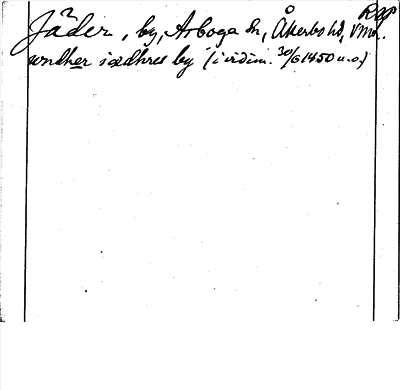 Jäder, by, Arboga sn, Åkerbo hd, Vml.
undher iædhree by (i vidim. 30/6 1450 u.o.)